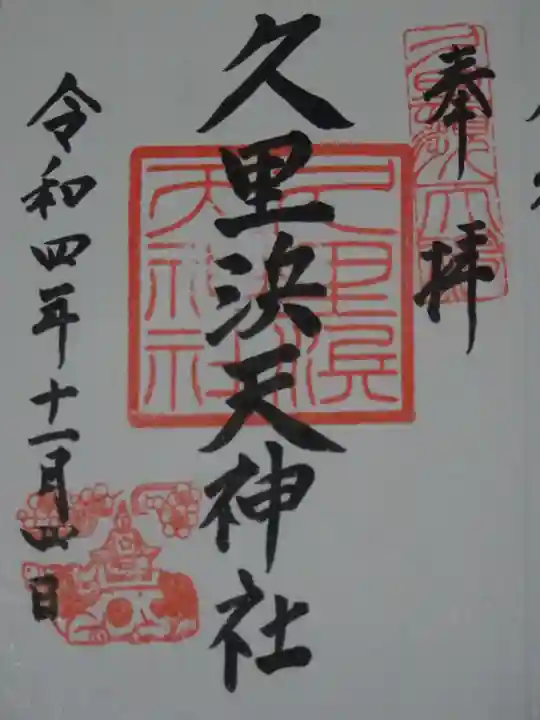 奉拝
久里浜天神社
久里浜天神社
令和四年十一月四日